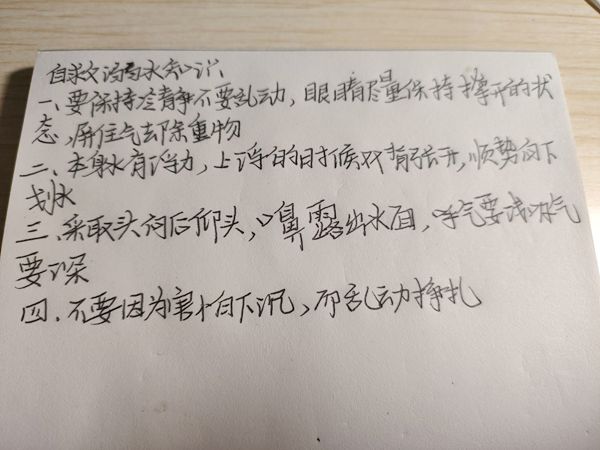 自救溺水知识
一、要保持冷静不要乱动，眼睛尽量保持撑开的状
态，屏住气去除重物
二、本身水有浮力，上浮的时候双臂张开，顺势向下
划水
三、采取头向后仰头，口鼻露出水面，呼气要浅吸气
要深
四、不要因为害怕下沉，而乱动挣扎